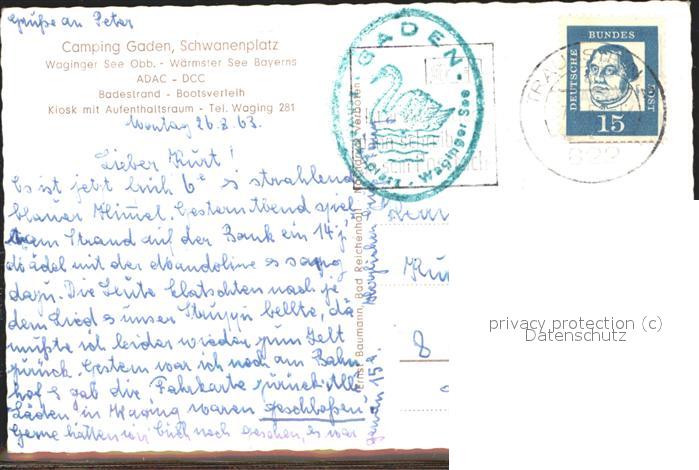 Grüße an Peter
Camping Gaden, Schwanenplatz
Waginger See Obb. - Wärmster See Bayerns
ADAC - DCC
Badestrand - Bootsverleih
Kiosk mit Aufenthaltsraum - Tel. Waging 281
Montag 26.8.63.
Lieber Kurt!
Es ist jetzt früh 6° s strahlend
blauer Himmel. Gestern Abend spiel
am Strand auf der Bank ein 14 j
mit der Mandoline es sang
dazu. Die Leute klatschten nach je
dem Lied s unser Struppi bellte, da
mußte ich leider wieder zum Zelt
zurück. Gestern war ich noch am Bahn
hof s gab die Fahrkarte zurück. Alle
Läden in Waging waren geschloßen
Gerne hätten wir Euch noch gesehen, es war
GADEN
Waginger See
DEUTSCHE BUNDESPOST
15
TRAUNSTEIN
822
Ernst Baumann, Bad Reichenhall Nachdruck verboten
Kur
8
privacy protection (c)
Datenschutz